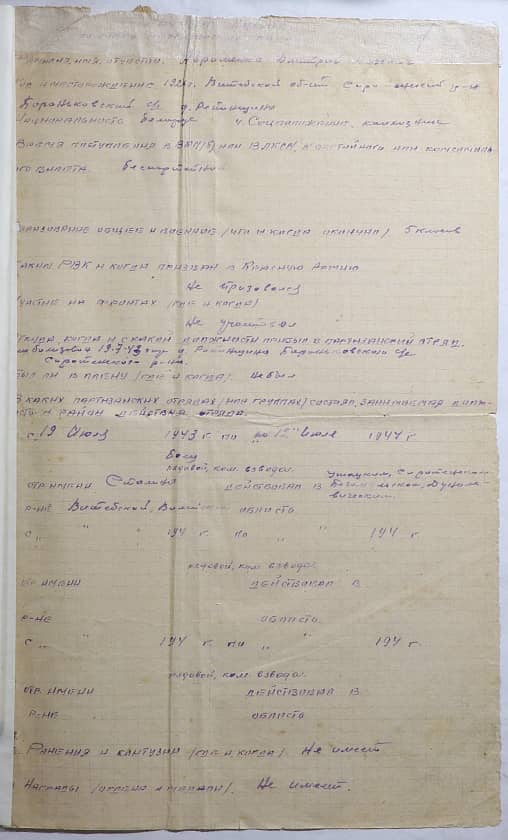 Фамилия, имя, отчество. Короленко Дмитрий
Год и месторождение 192 г. Витебской об-ти, Сиро р-н
д. Ровтинцина
Национальность белорус 4. Соцположение, колхозник
Время поступления в ВКП/б/ или ВЛКСМ, № партийного или комсомоль-
ского билета. Беспартейный
Образование общее и военное /что и когда окончил/ 5 класов
Каким РВК и когда призван в Красную Армию
Не призовался
Участие на фронтах /где и когда/
Не участвовал
Откуда, когда и с какой должности прибыл в партизанский отряд.
мобилизован 19.7.43 году д.
Сиротенского р-на.
Был ли в плену /где и когда/. не был
В каких партизанских отрядах /или группах/ состоял, занимаемая долж-
ность и район действия отряда.
с „19 Июля 1943 г. по „12" Июля 1944 г.
Боец
рядовой, ком. взвода.
отр. имени Сталина действовал в Ушацким, Сиротенском
р-не Витебской, области.
с „ " 194 г. по „ " 194 г.
рядовой, ком. взвода.
отр. имени действовал в
р-не области.
с „ " 194 г. по „ " 194 г.
рядовой, ком. взвода.
отр. имени действовал в
р-не области
Ранения и кантузии /где и когда/. Не имеет
Награды /ордена и медали/. Не имеет.